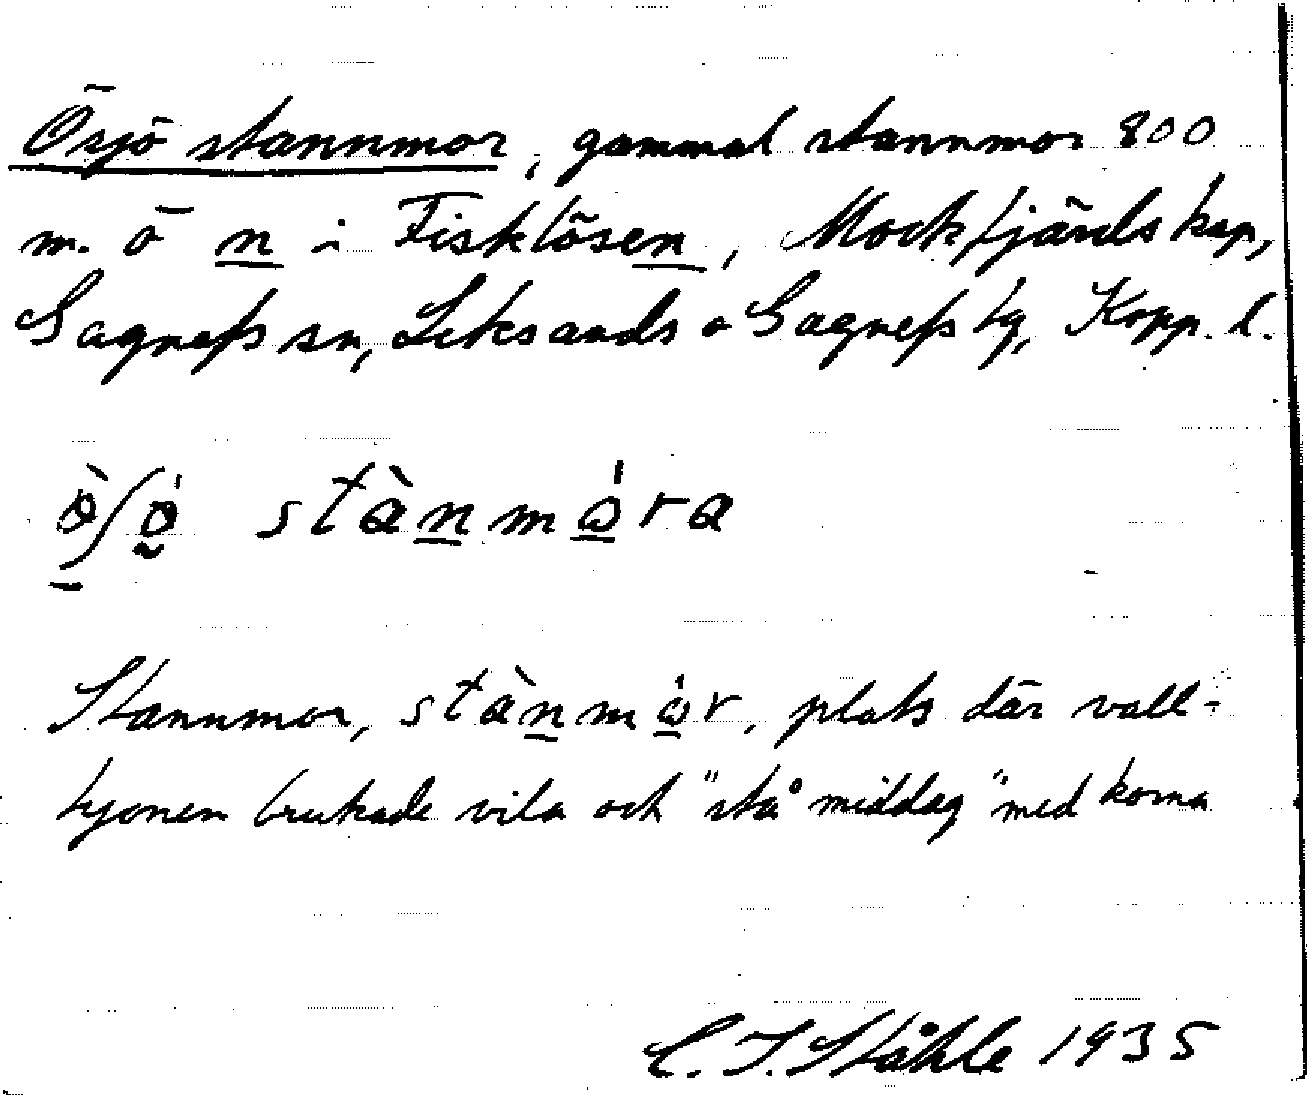 Ösjö stannmor, gammal stannmor 800
m. ö n i Fisklösen, Mockfjärds kap,
Gagnefs sn, Leksands o Gagnefs tg, Kopp. l.
stànmóra
Stannmor, stànmór, plats där vall-
hjonen brukade vila och "stå middag" med korna
C. I. Ståhle 1935